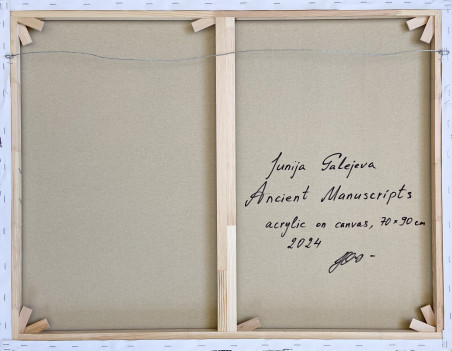 Junija Galejeva
Ancient Manuscripts
acrylic on canvas, 70 x 90 cm
2024